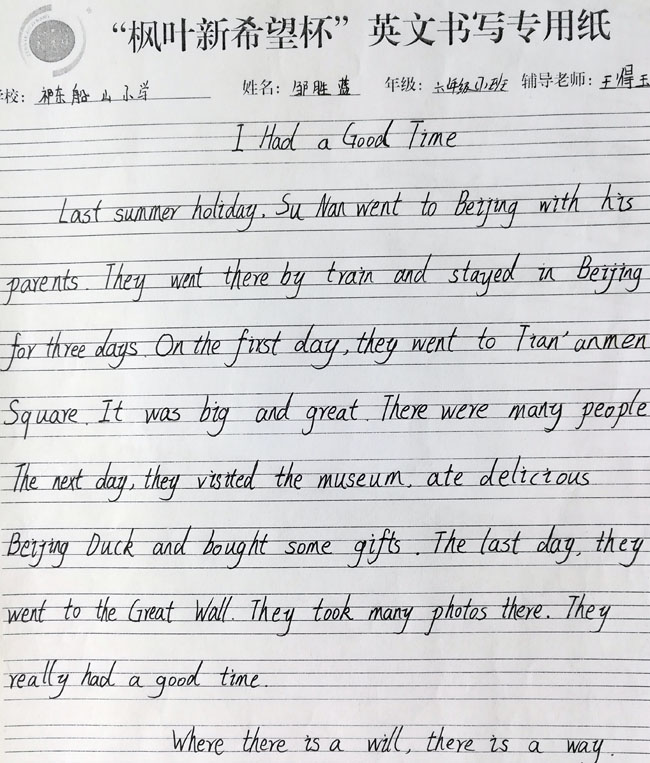 “枫叶新希望杯”英文书写专用纸
学校：祁东船山小学 姓名：邹胜蓝 年级：六年级 小班 辅导老师：王得玉
I Had a Good Time
Last summer holiday. Su Nan went to Beijing with his
parents. They went there by train and stayed in Beijing
for three days. On the first day, they went to Tian'anmen
Square. It was big and great. There were many people
The next day, they visited the museum, ate delicious
Beijing Duck and bought some gifts. The last day, they
went to the Great Wall. They took many photos there. They
really had a good time.
Where there is a will, there is a way.